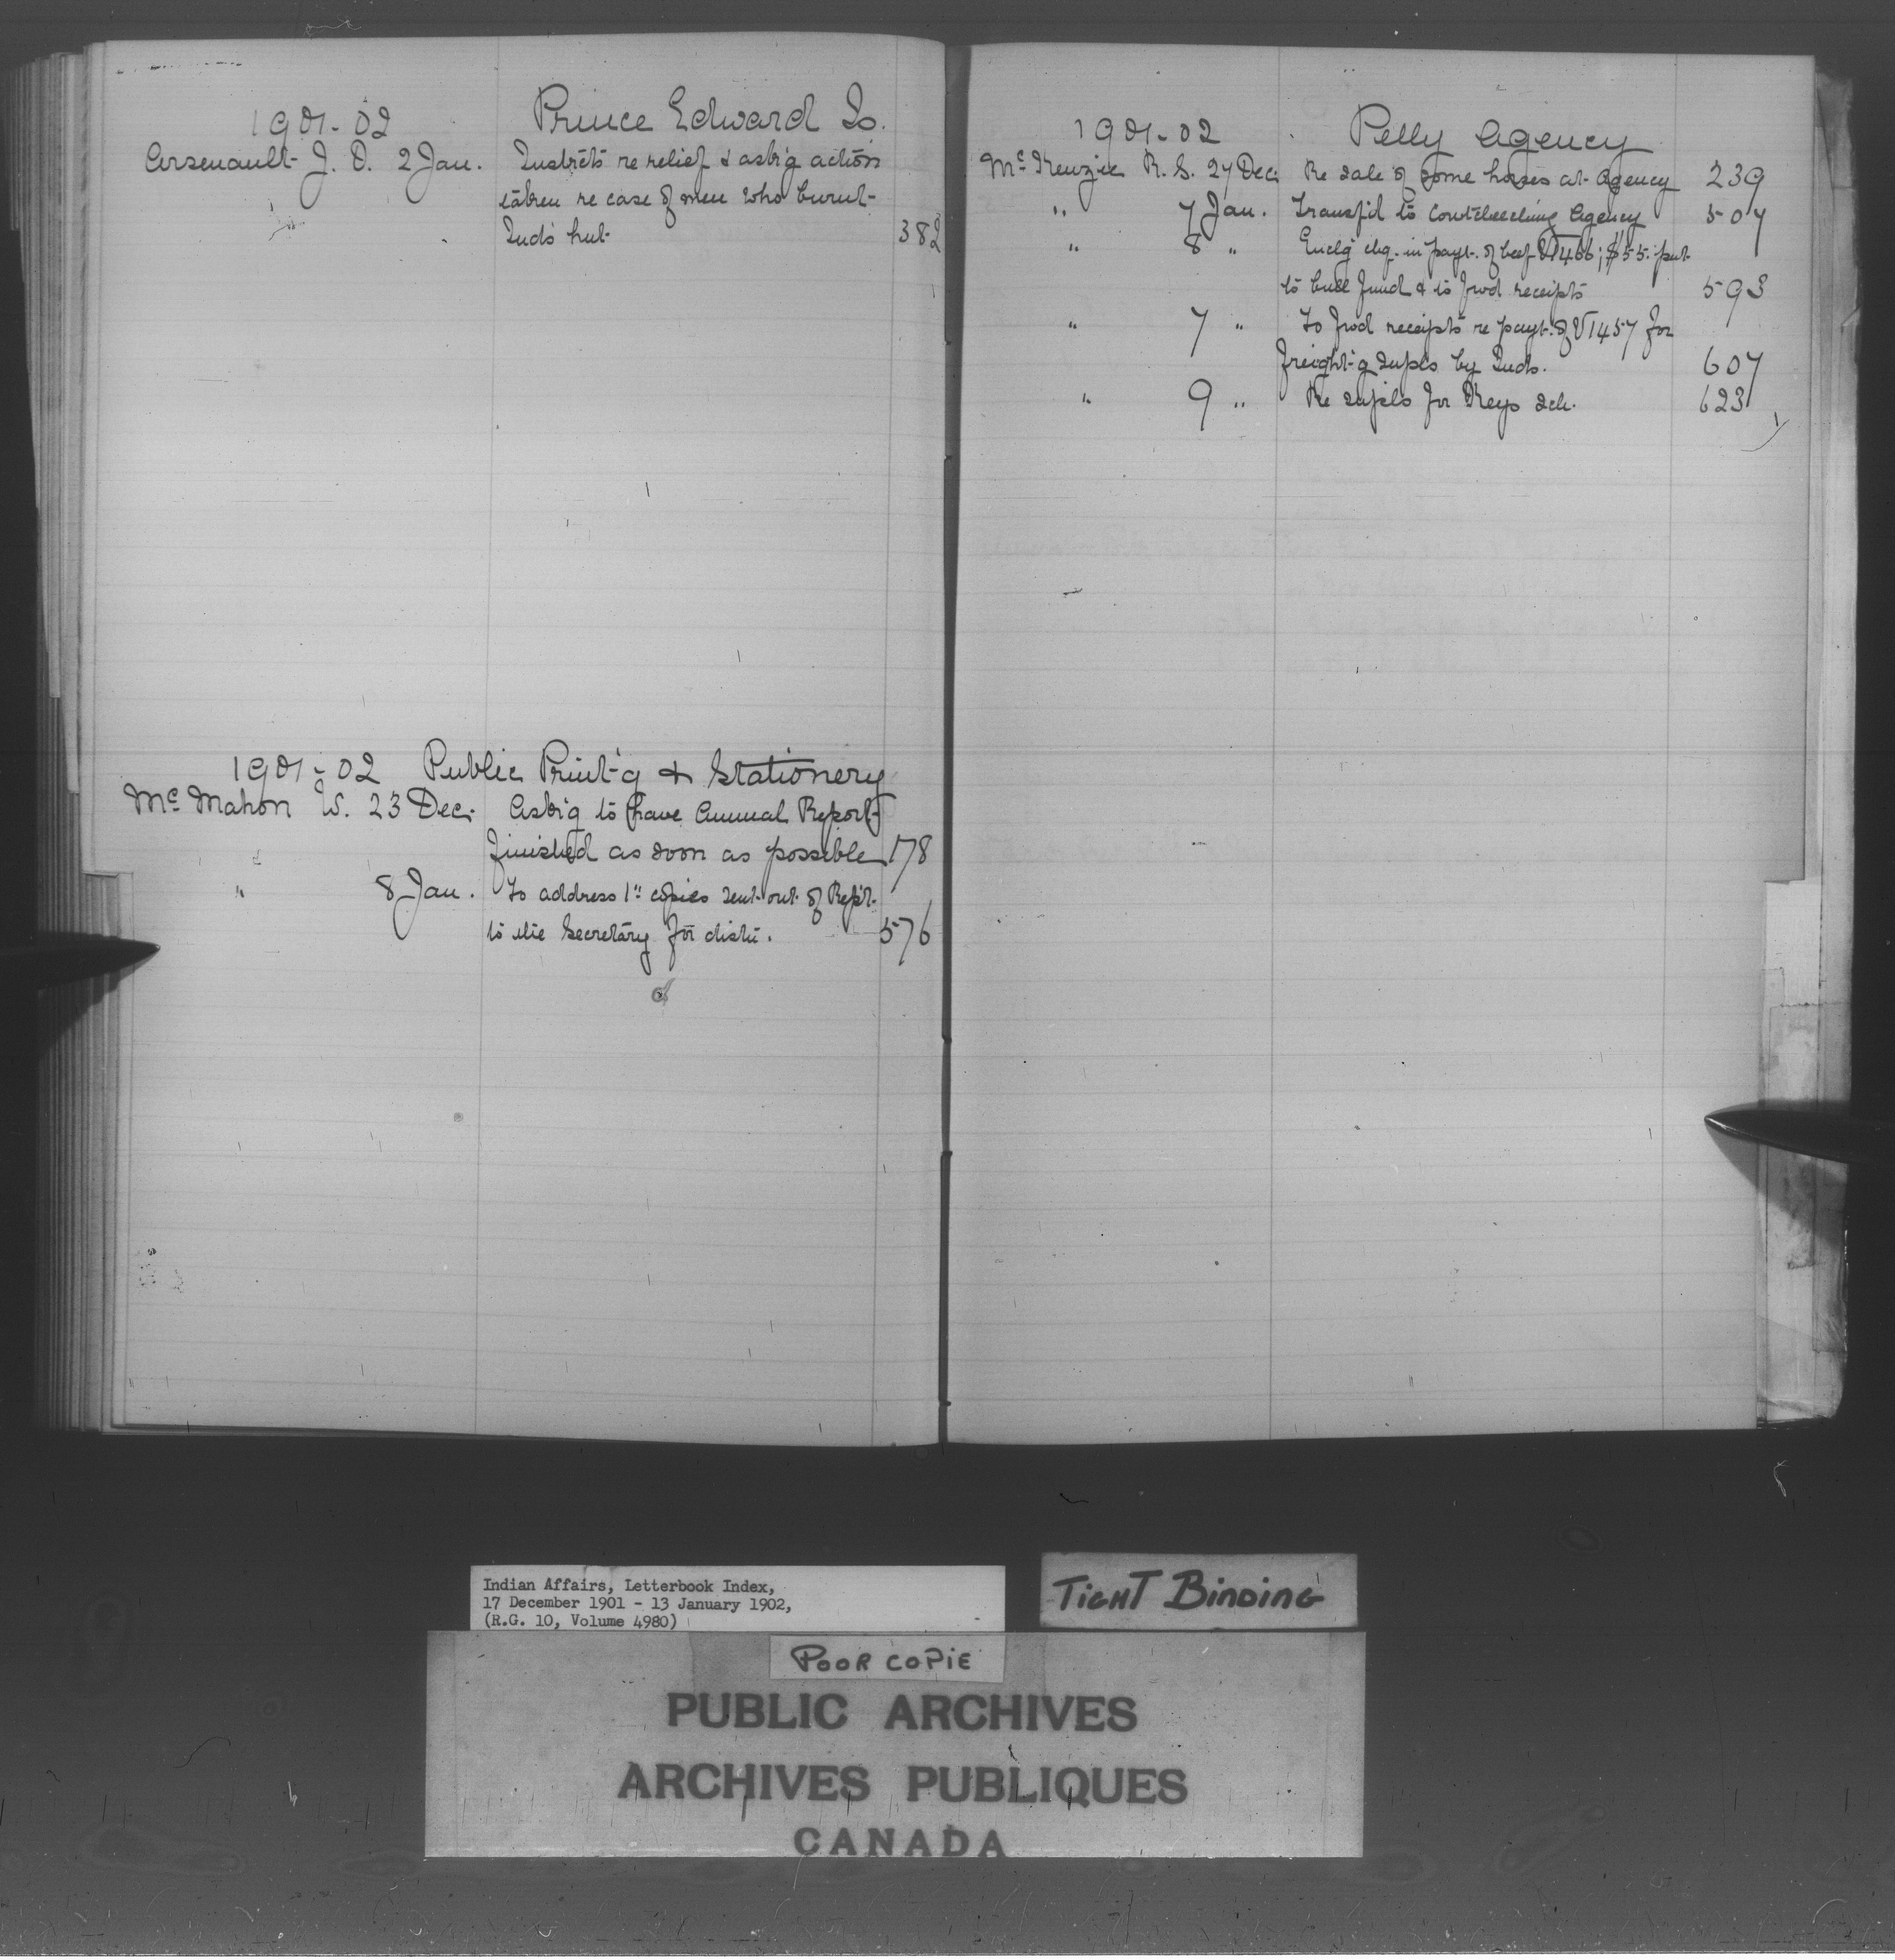 1901-02 Prince Edward Is.
Arsenault J. O. 2 Jan. Instrcts re relief & ask'g action
taken re case of men who burnt
Inds hut 382
1901-02 Public Print'g & Stationery
McMahon W. 23 Dec. Ask'g to have Annual Report
finished as soon as possible 178
" 8 Jan. To address 1st copies sent out of Rep't
to the Secretary for distn. 576
1901-02 Pelly Agency
McKenzie R. S. 27 Dec. Re sale of some horses at Agency 239
" 7 Jan. Transf'd to Couchiching Agency 507
" 8 " Enclg chq. in payt. of beef V1466; $55. put
to bull fund & to fwd receipts 593
" 7 " To fwd receipts re payt. of V1457 for
freight'g supls by Inds. 607
" 9 " Re supls for Keys sch. 623
Indian Affairs, Letterbook Index,
17 December 1901 - 13 January 1902,
(R.G. 10, Volume 4980)
TIGHT BINDING
POOR COPIE
PUBLIC ARCHIVES
ARCHIVES PUBLIQUES
CANADA